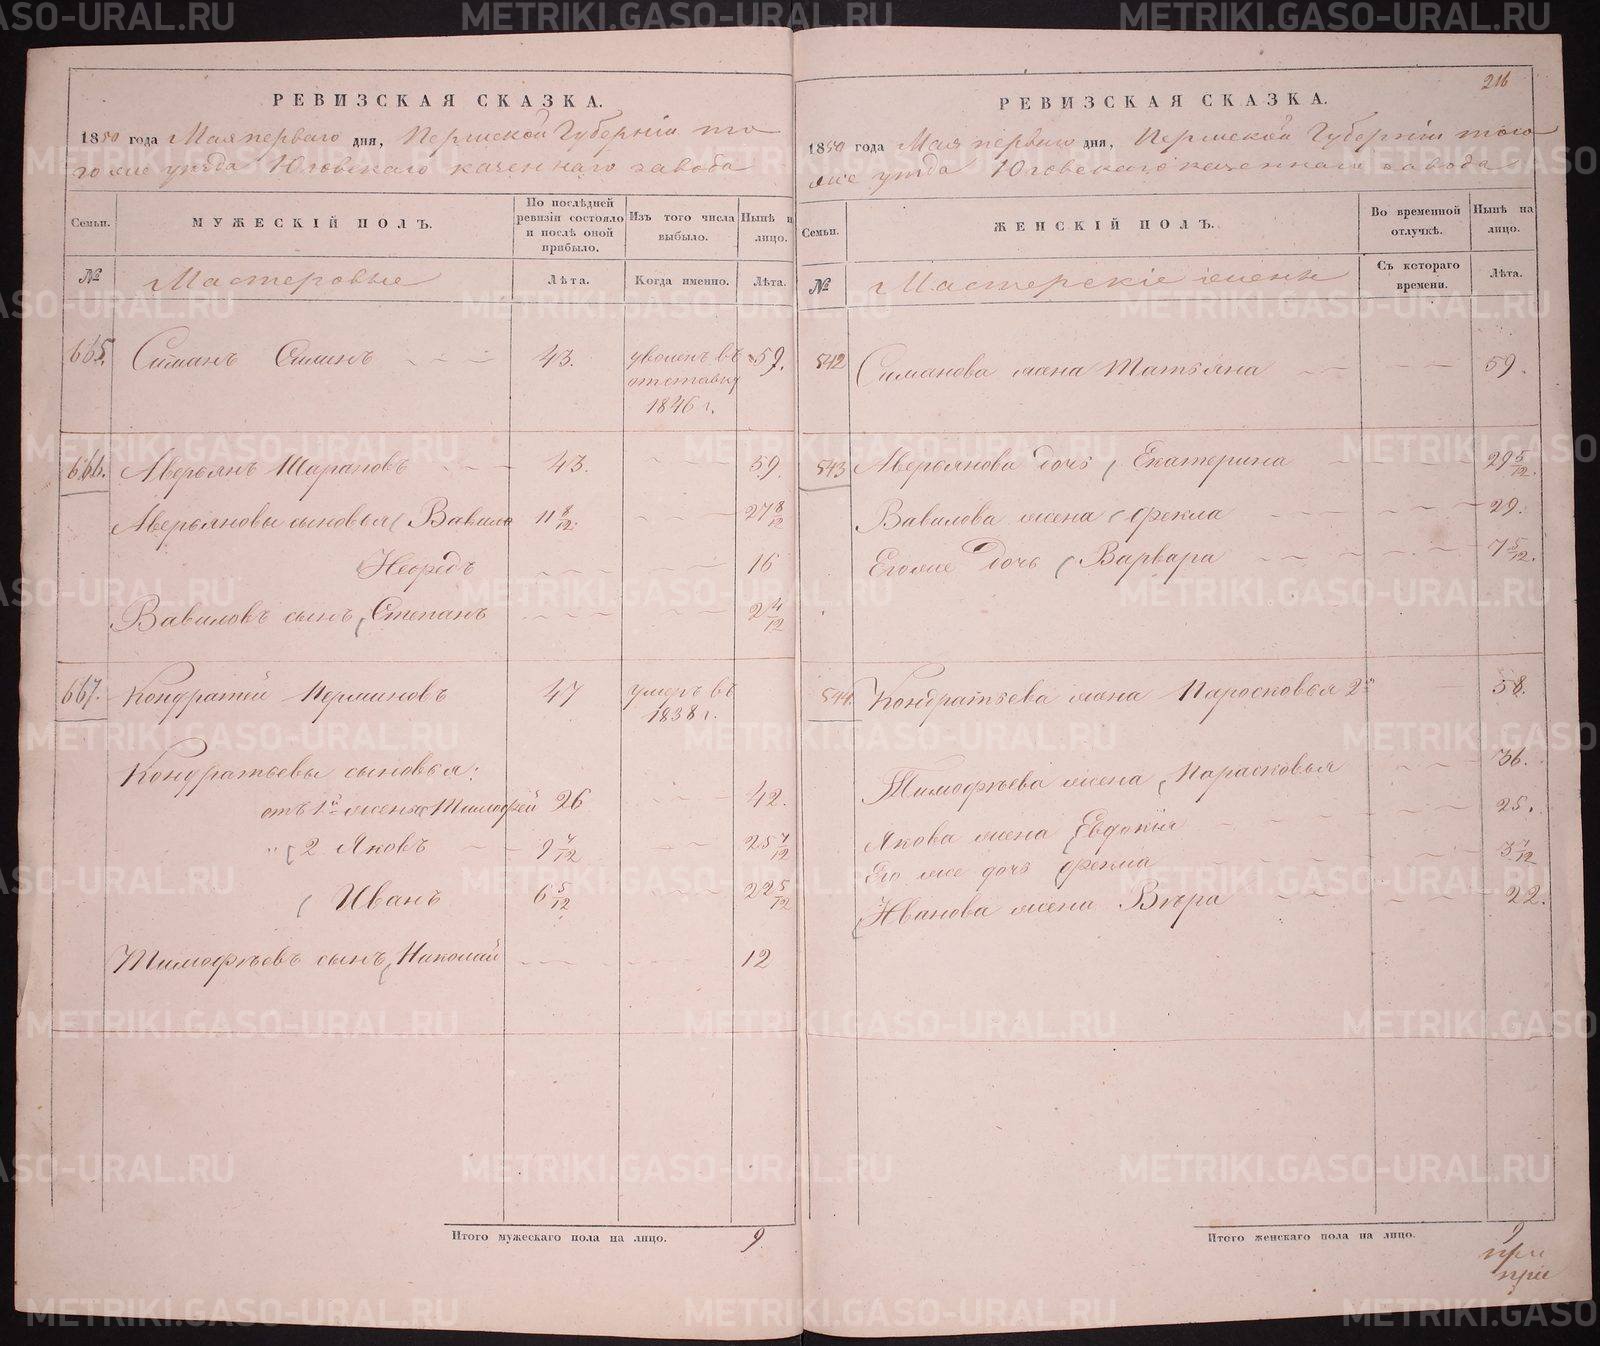 РЕВИЗСКАЯ СКАЗКА.
1850 года Мая перваго дня, Пермской Губерніи то
го же уѣзда Юговскаго казеннаго завода
Семьи.
МУЖЕСКІЙ ПОЛЪ.
По послѣдней ревизіи состояло и послѣ оной прибыло.
Изъ того числа выбыло.
Нынѣ на лицо.
№
Мастеровые
Лѣта.
Когда именно.
Лѣта.
665. Симанъ 43. уволенъ въ 59.
отставку
1846 г.
666. Аверьянъ Шарановъ 43. 59.
Аверьяновы сыновья Вавило 11 8/12. 27 8/12
16
Вавиловъ сынъ, Степанъ 2 4/12
667. Кондратей Перминовъ 47 умеръ въ
1838 г.
Кондратьевы сыновья:
отъ 1й жены Тимофей 26 42.
2 Яковъ 9 7/12 25 7/12
Иванъ 6 5/12 22 5/12
Тимофѣевъ сынъ, Николай 12
Итого мужескаго пола на лицо. 9
216
РЕВИЗСКАЯ СКАЗКА.
1850 года Мая перваго дня, Пермской Губерніи того
же уѣзда Юговскаго казеннаго завода
Семьи.
ЖЕНСКІЙ ПОЛЪ.
Во временной отлучкѣ.
Нынѣ на лицо.
№
Мастерскіе жены
Съ котораго времени.
Лѣта.
542 Симанова жена Татьяна 59.
543 Аверьянова дочь, Екатерина 29 5/12.
Вавилова жена Фекла 29.
Егоже дочь Варвара 7 5/12.
544. Кондратьева жена Парасковья 2я 58.
Тимофѣева жена, Парасковья 36.
Якова жена Евдокія 25.
Его же дочь Фекла 3 7/12
Иванова жена Вѣра 22.
Итого женскаго пола на лицо. 9
при
при
METRIKI.GASO-URAL.RU